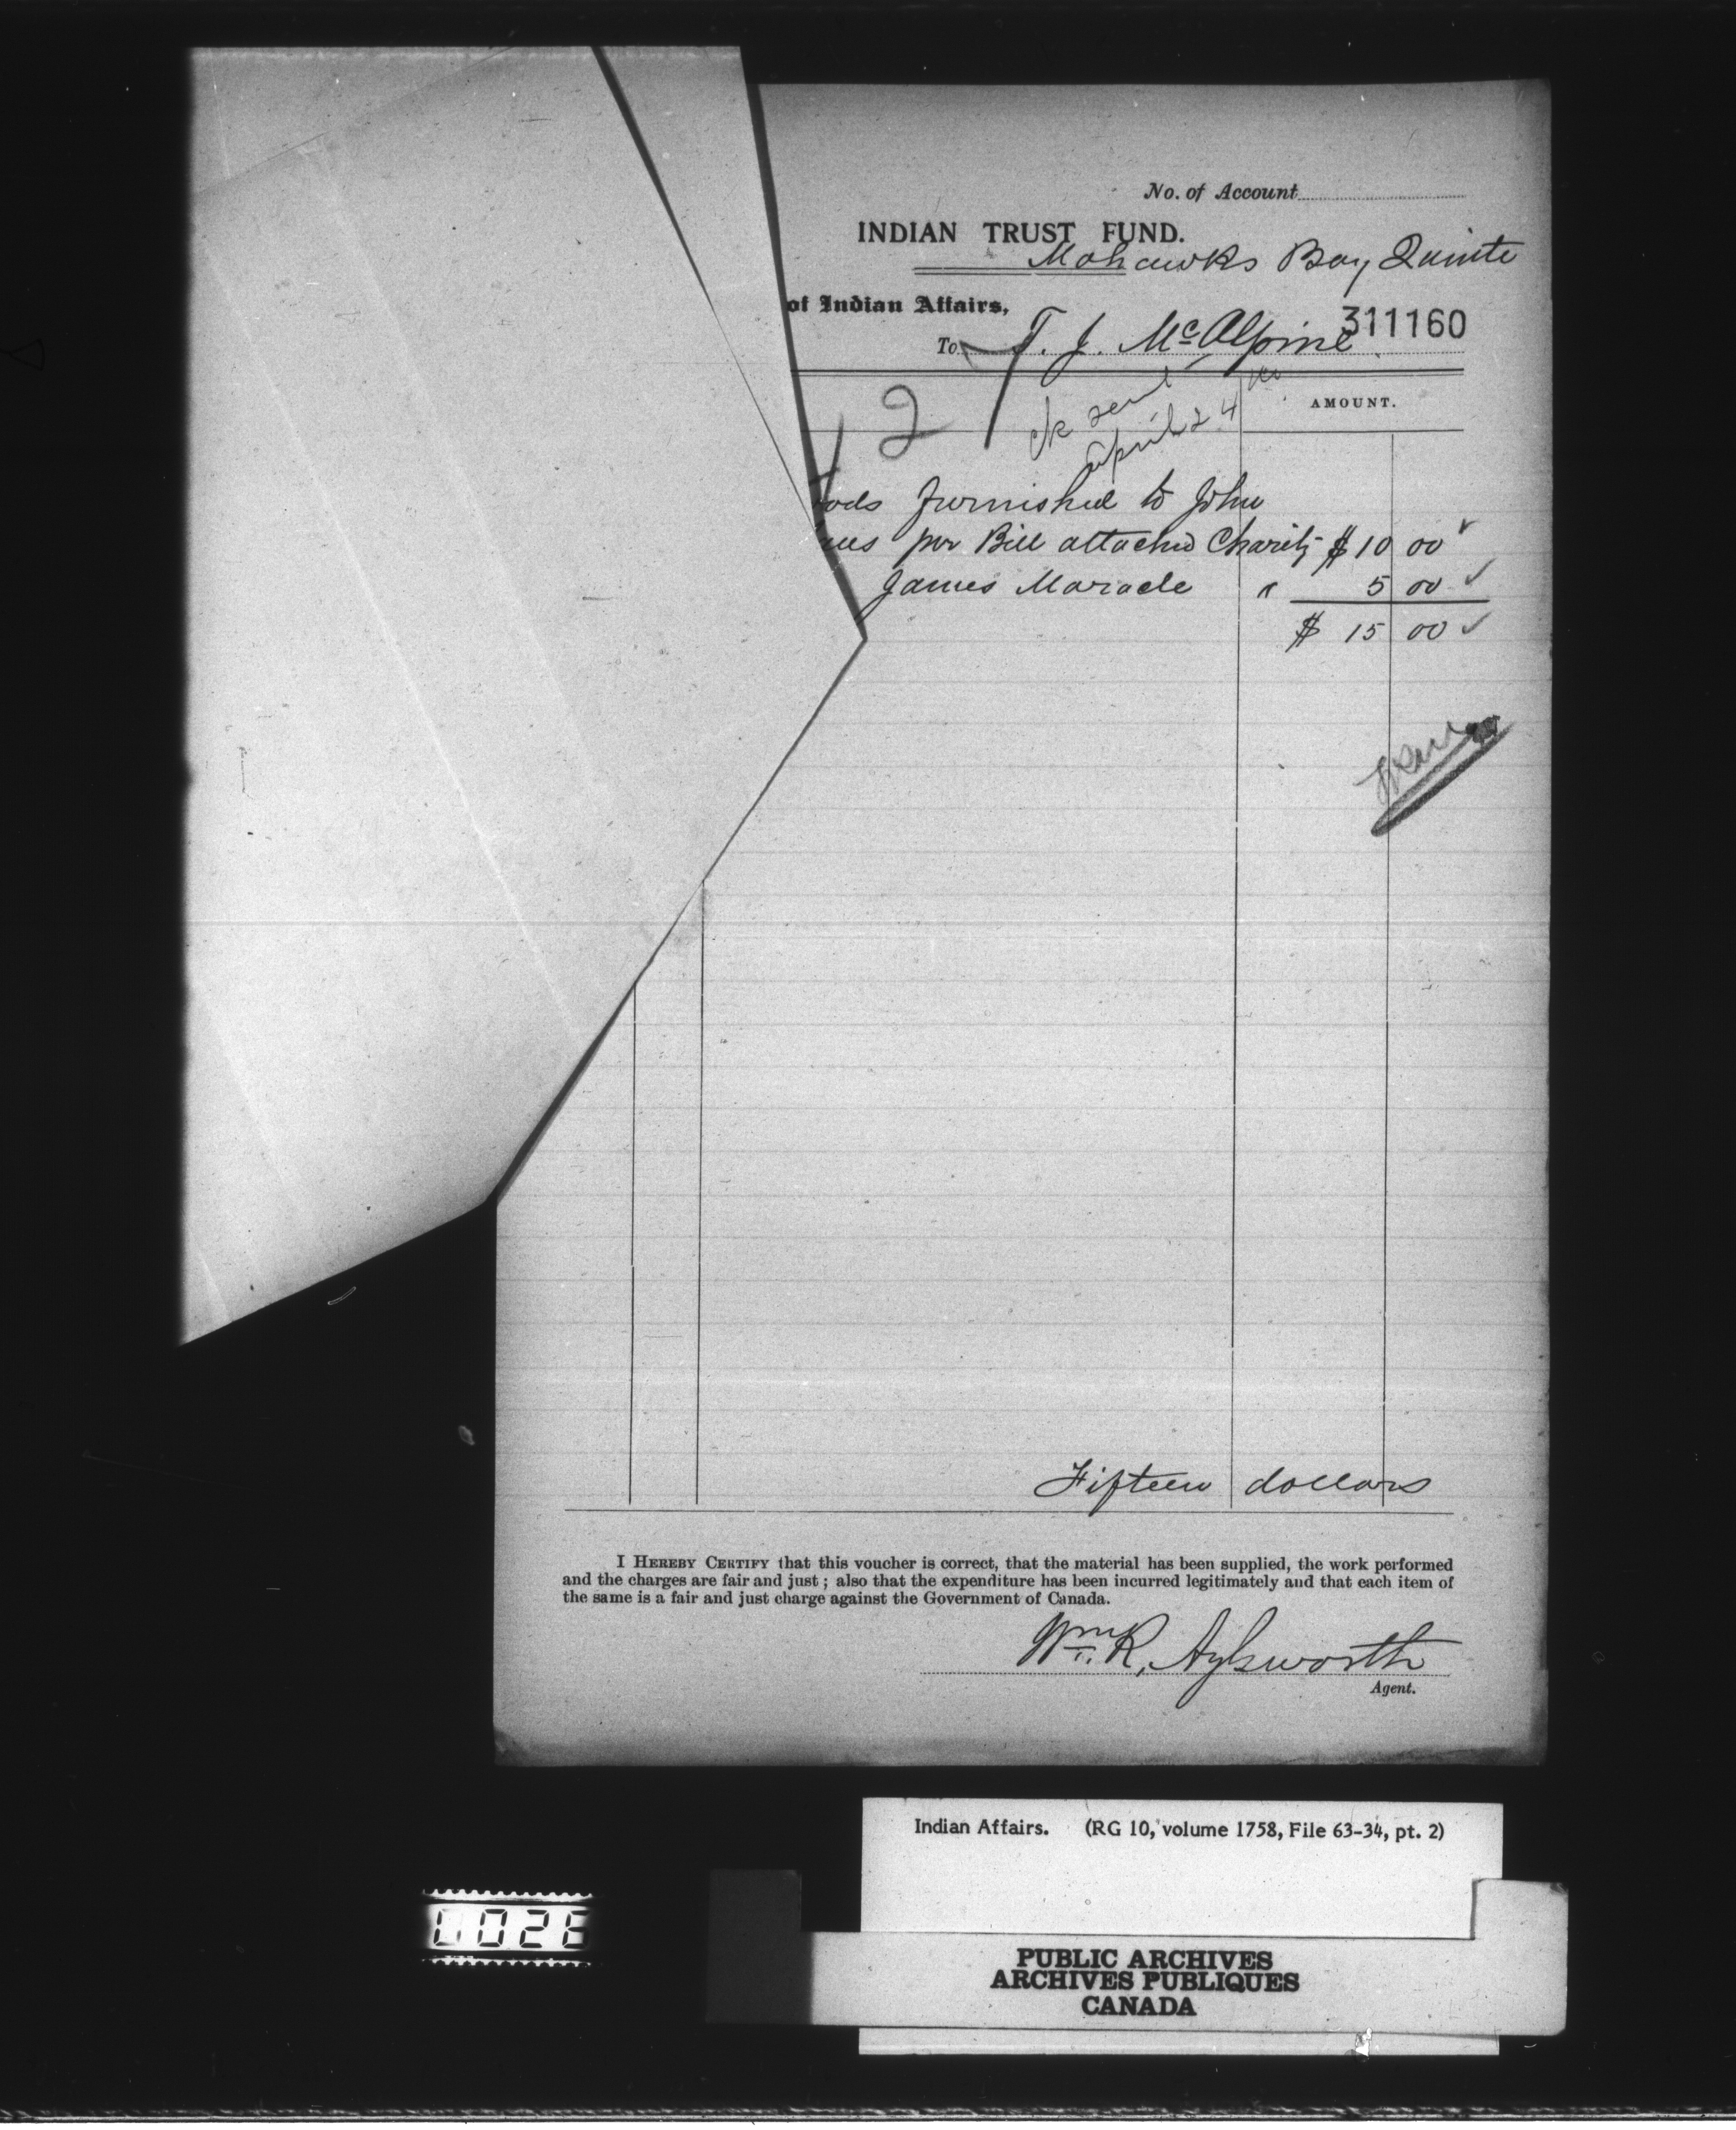 No. of Account
INDIAN TRUST FUND.
Mohawks Bay Quinte
of Indian Affairs,
311160
To T. J. McAlpine
2
ck sent
April 24
AMOUNT.
ods furnished to John
per Bill attached Charity $10 00
James Maracle " 5 00
$ 15 00
Fifteen dollars
I HEREBY CERTIFY that this voucher is correct, that the material has been supplied, the work performed
and the charges are fair and just; also that the expenditure has been incurred legitimately and that each item of
the same is a fair and just charge against the Government of Canada.
Wm. R. Aylsworth
Agent.
Indian Affairs. (RG 10, volume 1758, File 63-34, pt. 2)
PUBLIC ARCHIVES
ARCHIVES PUBLIQUES
CANADA